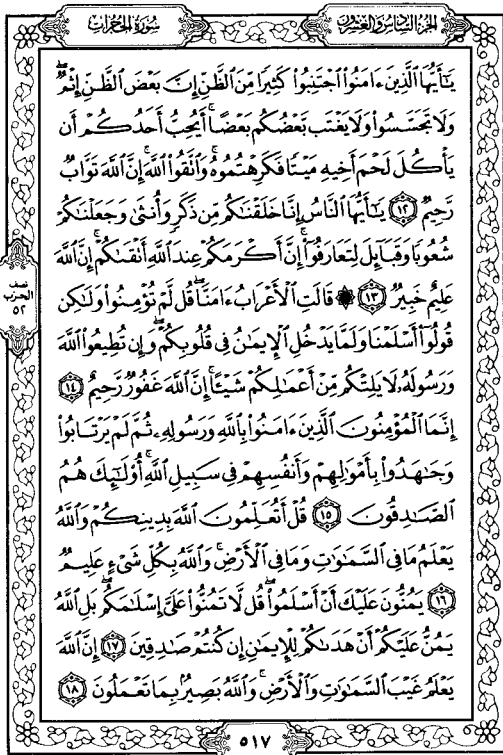 سُورَةُ الحُجُرَاتِ
الجزء السادس والعشرون
يَٰٓأَيُّهَا ٱلَّذِينَ ءَامَنُوا۟ ٱجْتَنِبُوا۟ كَثِيرًا مِّنَ ٱلظَّنِّ إِنَّ بَعْضَ ٱلظَّنِّ إِثْمٌ ۖ
وَلَا تَجَسَّسُوا۟ وَلَا يَغْتَب بَّعْضُكُم بَعْضًا ۚ أَيُحِبُّ أَحَدُكُمْ أَن
يَأْكُلَ لَحْمَ أَخِيهِ مَيْتًا فَكَرِهْتُمُوهُ ۚ وَٱتَّقُوا۟ ٱللَّهَ ۚ إِنَّ ٱللَّهَ تَوَّابٌ
رَّحِيمٌ ١٢ يَٰٓأَيُّهَا ٱلنَّاسُ إِنَّا خَلَقْنَٰكُم مِّن ذَكَرٍ وَأُنثَىٰ وَجَعَلْنَٰكُمْ
شُعُوبًا وَقَبَآئِلَ لِتَعَارَفُوٓا۟ ۚ إِنَّ أَكْرَمَكُمْ عِندَ ٱللَّهِ أَتْقَىٰكُمْ ۚ إِنَّ ٱللَّهَ
عَلِيمٌ خَبِيرٌ ١٣ ۞ قَالَتِ ٱلْأَعْرَابُ ءَامَنَّا ۖ قُل لَّمْ تُؤْمِنُوا۟ وَلَٰكِن
قُولُوٓا۟ أَسْلَمْنَا وَلَمَّا يَدْخُلِ ٱلْإِيمَٰنُ فِى قُلُوبِكُمْ ۖ وَإِن تُطِيعُوا۟ ٱللَّهَ
وَرَسُولَهُۥ لَا يَلِتْكُم مِّنْ أَعْمَٰلِكُمْ شَيْـًٔا ۚ إِنَّ ٱللَّهَ غَفُورٌ رَّحِيمٌ ١٤
إِنَّمَا ٱلْمُؤْمِنُونَ ٱلَّذِينَ ءَامَنُوا۟ بِٱللَّهِ وَرَسُولِهِۦ ثُمَّ لَمْ يَرْتَابُوا۟
وَجَٰهَدُوا۟ بِأَمْوَٰلِهِمْ وَأَنفُسِهِمْ فِى سَبِيلِ ٱللَّهِ ۚ أُو۟لَٰٓئِكَ هُمُ
ٱلصَّٰدِقُونَ ١٥ قُلْ أَتُعَلِّمُونَ ٱللَّهَ بِدِينِكُمْ وَٱللَّهُ
يَعْلَمُ مَا فِى ٱلسَّمَٰوَٰتِ وَمَا فِى ٱلْأَرْضِ ۚ وَٱللَّهُ بِكُلِّ شَىْءٍ عَلِيمٌ
١٦ يَمُنُّونَ عَلَيْكَ أَنْ أَسْلَمُوا۟ ۖ قُل لَّا تَمُنُّوا۟ عَلَىَّ إِسْلَٰمَكُم ۖ بَلِ ٱللَّهُ
يَمُنُّ عَلَيْكُمْ أَنْ هَدَىٰكُمْ لِلْإِيمَٰنِ إِن كُنتُمْ صَٰدِقِينَ ١٧ إِنَّ ٱللَّهَ
يَعْلَمُ غَيْبَ ٱلسَّمَٰوَٰتِ وَٱلْأَرْضِ ۚ وَٱللَّهُ بَصِيرٌۢ بِمَا تَعْمَلُونَ ١٨
نصف
الحزب
٥٢
٥١٧